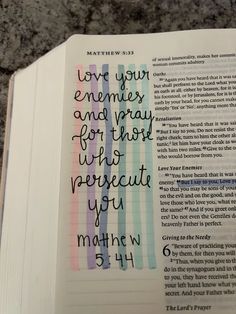 MATTHEW 5:33
love your
enemies
and pray
for those
who
persecute
you
matthew
5:44
of sexual immorality, makes her commit
woman commits adultery.
Oaths
"Again you have heard that it was said
but shall perform to the Lord what you
an oath at all, either by heaven, for it is
his footstool, or by Jerusalem, for it is th
oath by your head, for you cannot make
simply 'Yes' or 'No'; anything more than
Retaliation
"You have heard that it was said
But I say to you, Do not resist the o
right cheek, turn to him the other al
tunic, let him have your cloak as we
with him two miles. Give to the o
who would borrow from you.
Love Your Enemies
"You have heard that it was
enemy.' But I say to you, Love y
so that you may be sons of you
on the evil and on the good, and
those who love you, what re
the same? And if you greet onl
others? Do not even the Gentiles d
heavenly Father is perfect.
Giving to the Needy
6 "Beware of practicing your
by them, for then you will
"Thus, when you give to th
do in the synagogues and in th
to you, they have received
your left hand know what yo
secret. And your Father who
The Lord's Prayer